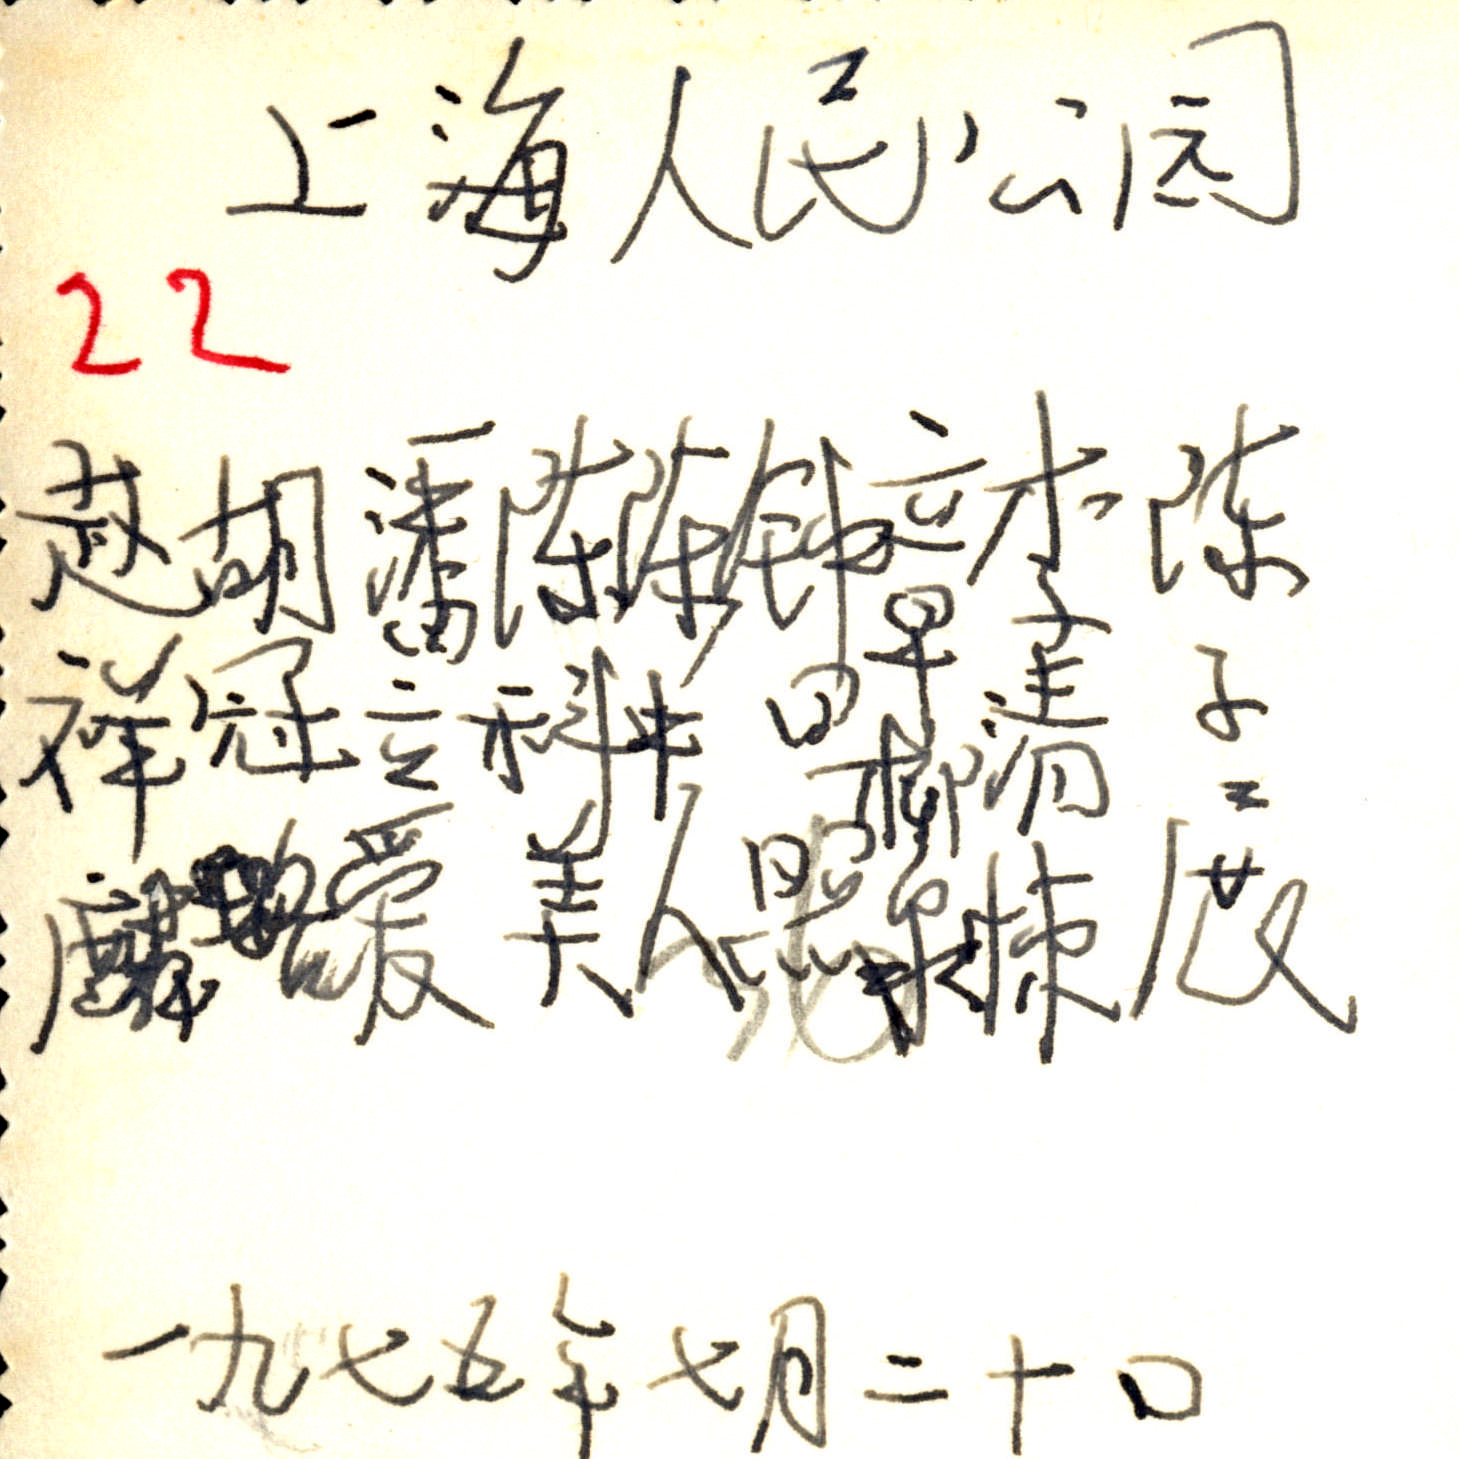 上海人民公园
22
赵胡潘陈陈钟章李陈
祥冠立科中日柳清子
麟爱美人照棟展
一九七五年七月二十日